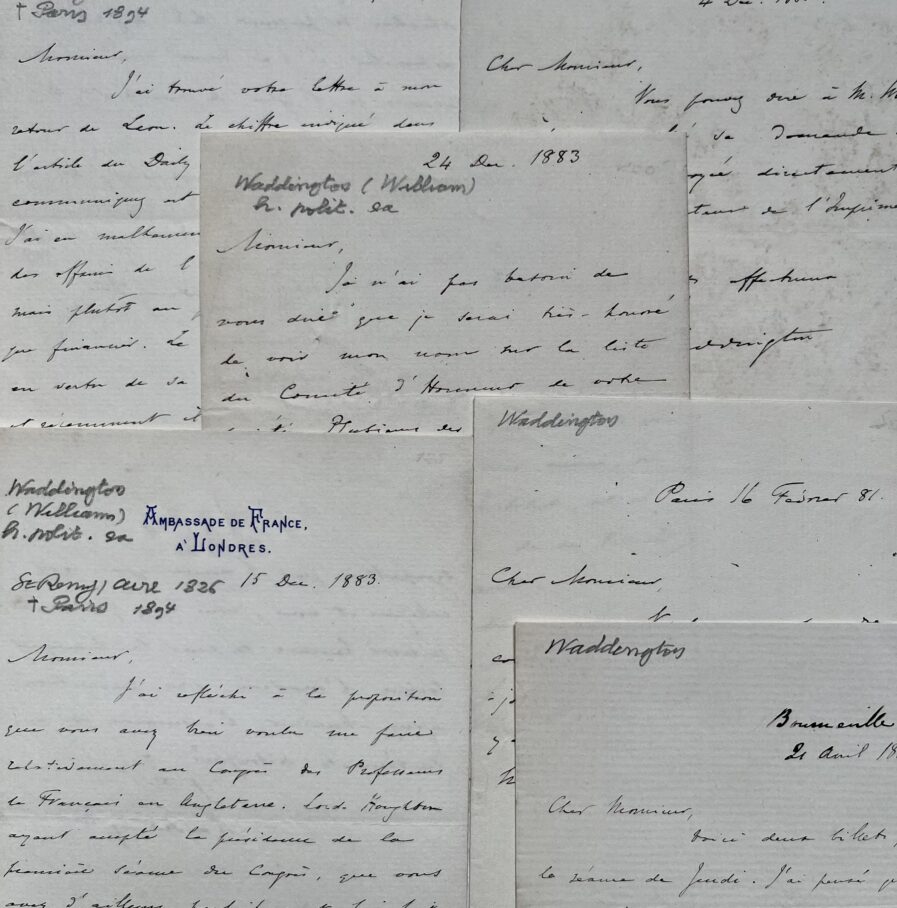 † Paris 1894
Monsieur,
J'ai trouvé votre lettre à mon
retour de Laon. Le chiffre indiqué dans
l'article du Daily
communiqué est
J'ai eu malheureu
des affaires de l
mais plutôt au
que financier. Le
en vertu de sa
et récemment il
4 Dec.
Cher Monsieur,
Vous pouvez dire à M. M
sa demande
directement
teur de l'Imprime
affectueux
ddington
24 Dec. 1883
Waddington (William)
h. polit. ea
Monsieur,
Je n'ai pas besoin de
vous dire que je serai très-honoré
de voir mon nom sur la liste
du Comité d'Honneur de votre
des
Waddington
(William)
h. polit. ea
AMBASSADE DE FRANCE,
A LONDRES.
St Remy, Avre 1826
† Paris 1894
15 Dec. 1883.
Monsieur,
J'ai réfléchi à la proposition
que vous avez bien voulu me faire
relativement au Congrès des Professeurs
de Français en Angleterre. Lord Houghton
ayant accepté la présidence de la
première séance du Congrès, que vous
avez d'ailleurs
Waddington
Paris 16 Février 81.
Cher Monsieur,
co
à jo
y a
Waddington
Bourneville
21 Avril 18
Cher Monsieur,
Voici deux billets,
la séance de Jeudi. J'ai pensé q